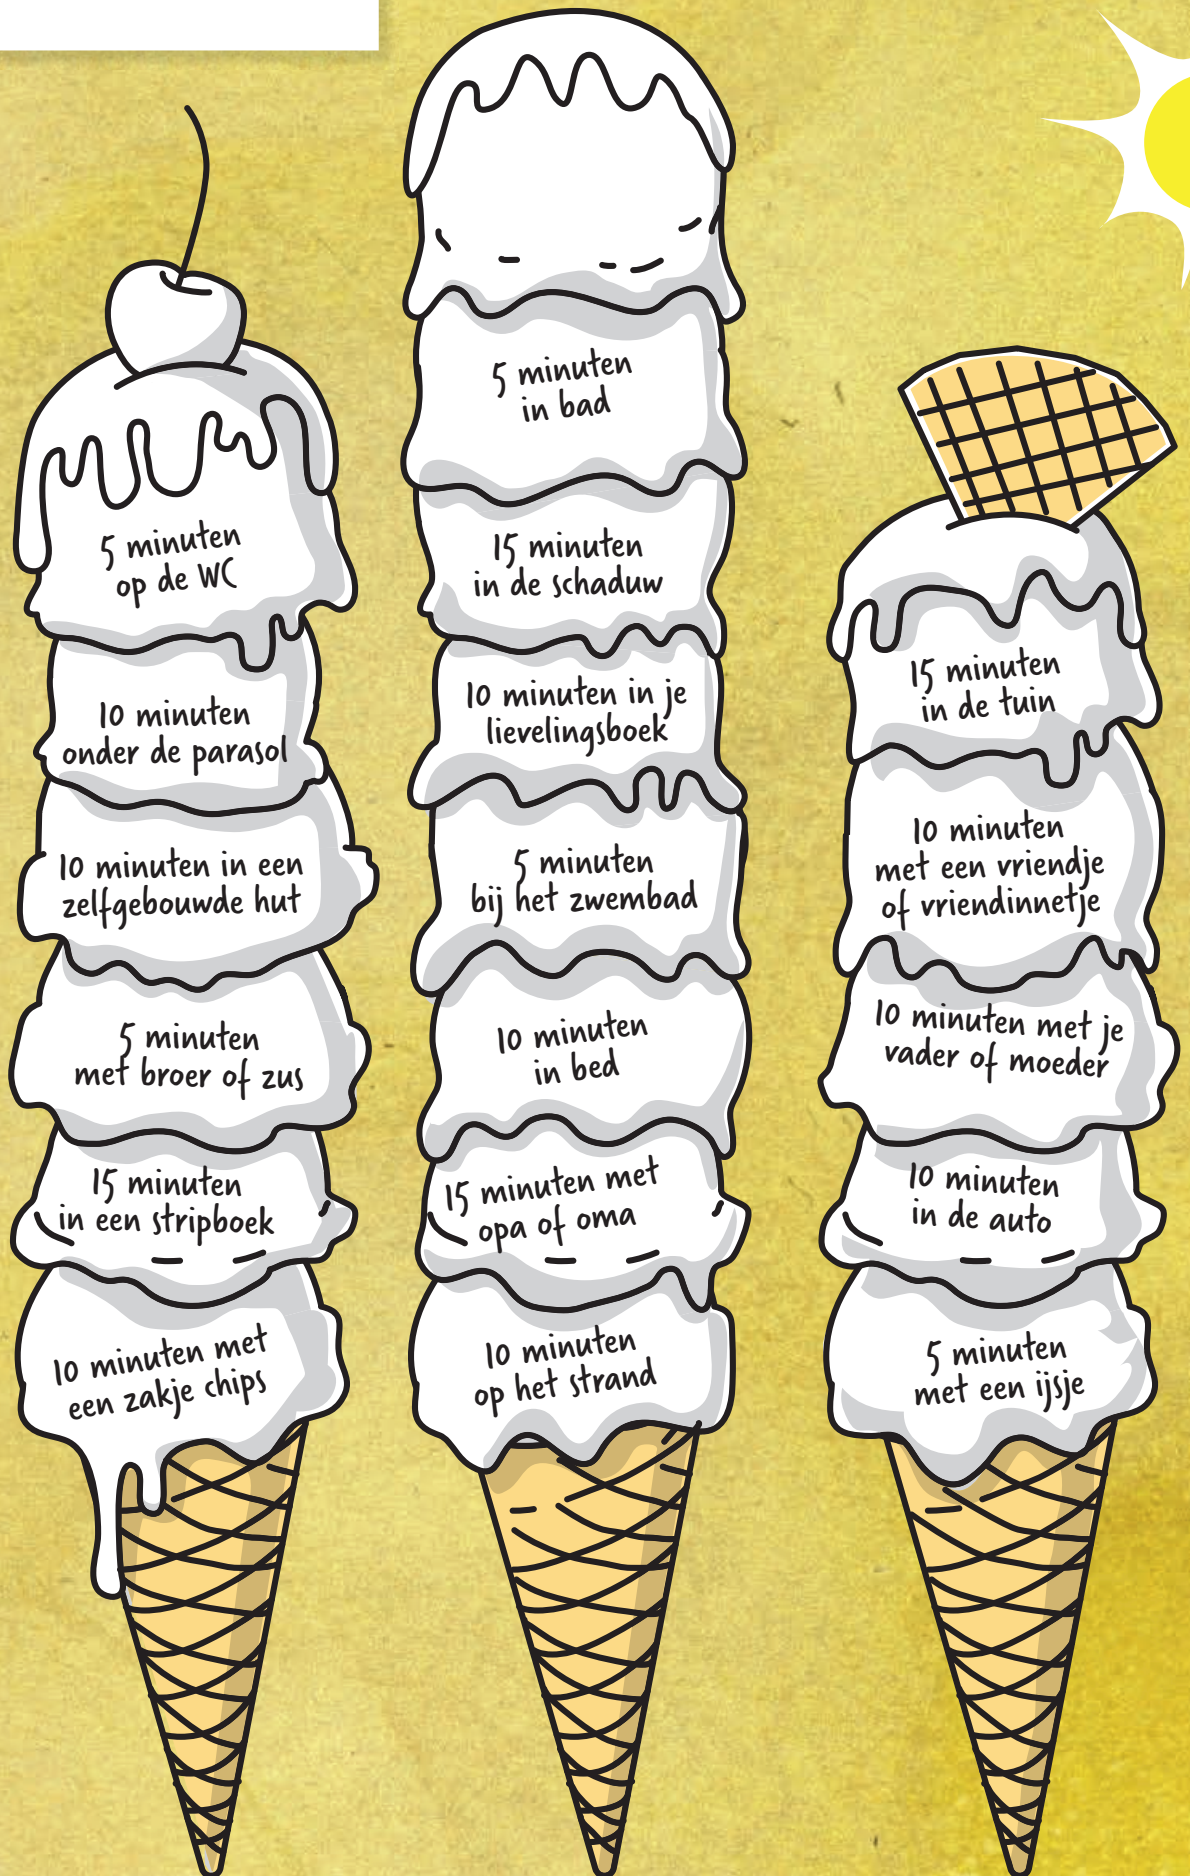 5 minuten
op de WC
10 minuten
onder de parasol
10 minuten in een
zelfgebouwde hut
5 minuten
met broer of zus
15 minuten
in een stripboek
10 minuten met
een zakje chips
5 minuten
in bad
15 minuten
in de schaduw
10 minuten in je
lievelingsboek
5 minuten
bij het zwembad
10 minuten
in bed
15 minuten met
opa of oma
10 minuten
op het strand
15 minuten
in de tuin
10 minuten
met een vriendje
of vriendinnetje
10 minuten met je
vader of moeder
10 minuten
in de auto
5 minuten
met een ijsje